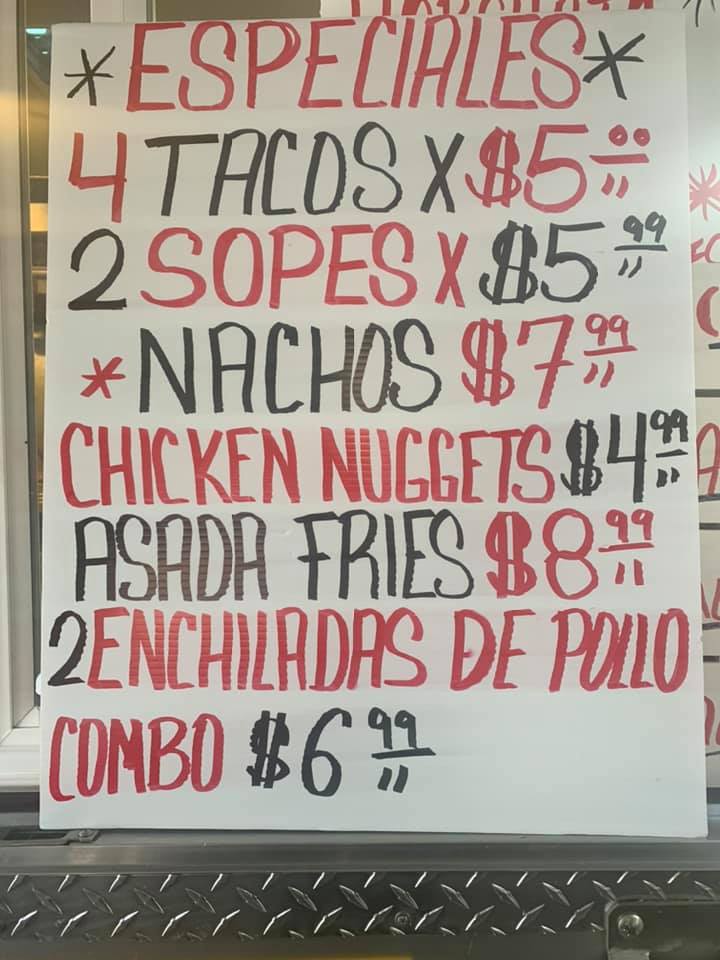 *ESPECIALES*
4 TACOS X $5.00
2 SOPES X $5.99
*NACHOS $7.99
CHICKEN NUGGETS $4.99
ASADA FRIES $8.99
2 ENCHILADAS DE POLLO
COMBO $6.99